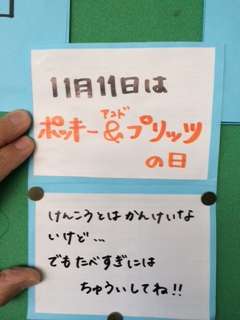 11月11日は
アンド
ポッキー&プリッツ
の日
けんこうとはかんけいな
いけど…
でもたべすぎには
ちゅういしてね!!